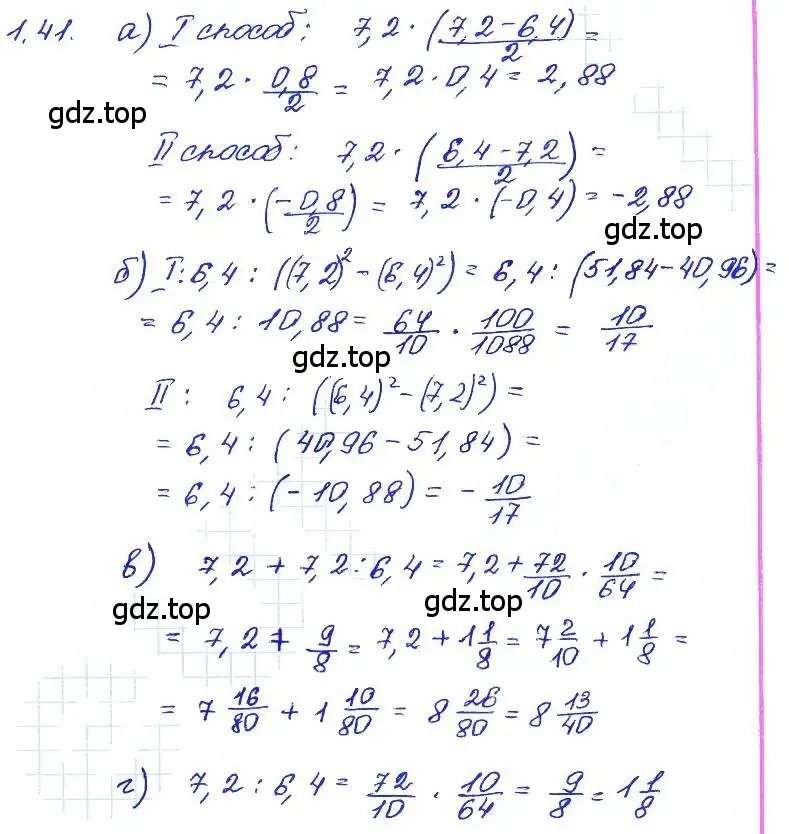 1.41. а) I способ: 7,2 · (7,2 − 6,4)/2 =
= 7,2 · 0,8/2 = 7,2 · 0,4 = 2,88
gdz.top
II способ: 7,2 · (6,4 − 7,2)/2 =
= 7,2 · (−0,8/2) = 7,2 · (−0,4) = −2,88
gdz.top
б) I: 6,4 : ((7,2)² − (6,4)²) = 6,4 : (51,84 − 40,96) =
= 6,4 : 10,88 = 64/10 · 100/1088 = 10/17
gdz.top
II: 6,4 : ((6,4)² − (7,2)²) =
= 6,4 : (40,96 − 51,84) =
= 6,4 : (−10,88) = − 10/17
в) 7,2 + 7,2 : 6,4 = 7,2 + 72/10 · 10/64 =
gdz.top gdz.top
= 7,2 + 9/8 = 7,2 + 1 1/8 = 7 2/10 + 1 1/8 =
= 7 16/80 + 1 10/80 = 8 26/80 = 8 13/40
г) 7,2 : 6,4 = 72/10 · 10/64 = 9/8 = 1 1/8